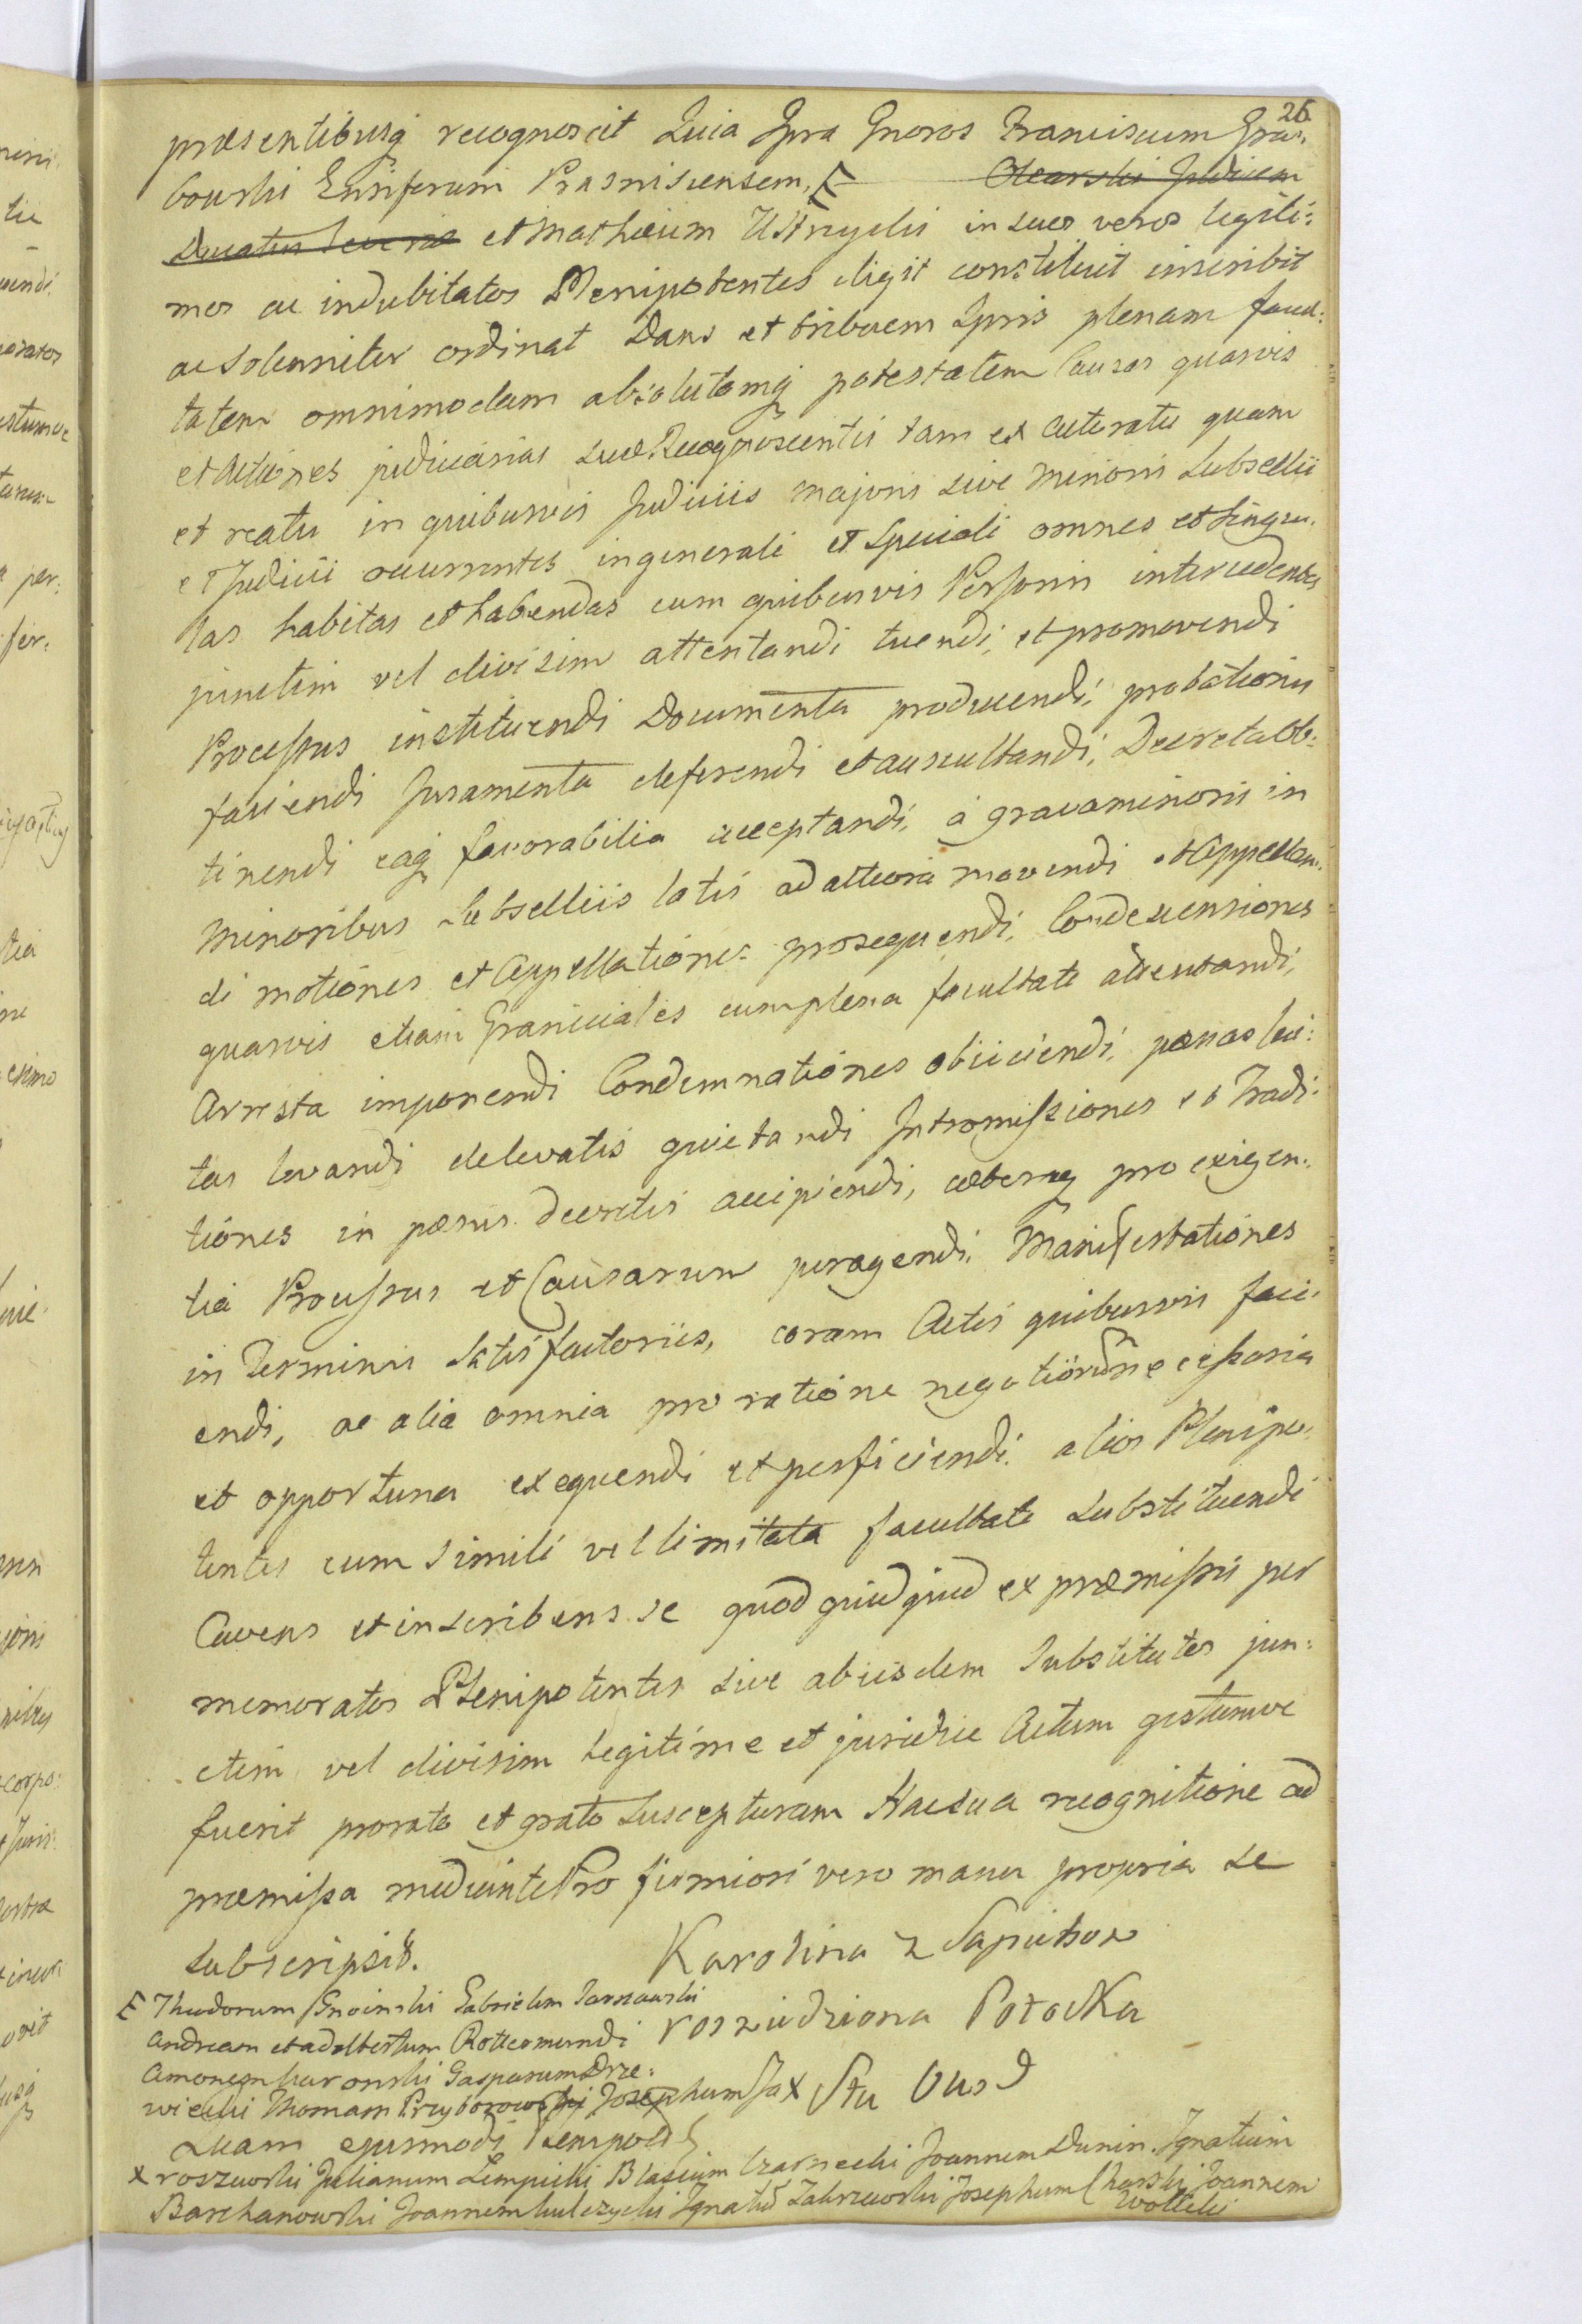 26
præsentibusq recognoscit Quia Ipra Gnosos Franciscum Gra:
bowski Ensiferum Prasnisciensem, E Olearski Judicem
Ducatus et Mathæum Ustrzycki in suos veros legiti:
mos ac indubitatos Plenipotentes eligit constituit inscribit
ac solenniter ordinat Dans et tribuens Ipsis plenam facul:
tatem omnimodam absolutamq potestatem Causas quasvis
et Actiones judiciarias suæ Recognoscentis tam ex actoratu quam
et reatu in quibusvis Judiciis majoris sive Minoris Subsellii
et Judicii occurrentes in generali et Speciali omnes et singu:
las habitas et habendas cum quibusvis Personis intercedentes
junctim vel divisim attentandi tuendi, et promovendi
Processus instituendi Documenta producendi, probationes
faciendi Juramenta deferendi et auscultandi, Decreta Ob:
tinendi eaq favorabilia acceptandi, a gravaminosis in
Minoribus Subselliis latis ad altiora movendi et Appellan:
di motiones et Appellationes prosequendi, Condescensiones
quasvis etiam Graniciales cum plena facultate attentandi,
Arresta imponendi Condemnationes obiiciendi, pænas luci:
tas levandi de levatis quietandi Intromissiones et Tradi:
tiones in pænis decretis accipiendi, cæteraq pro exigen:
tia Processus et Causarum peragendi, Manifestationes
in Terminis Satisfactoriis, coram Actis quibusvis faci:
endi, ac alia omnia pro ratione negotiorum necessaria
et opportuna exequendi et perficiendi, alios Plenipo:
tentes cum simili vel limitata facultate substituendi
Cavens et inscribens se quod quidquid ex præmissis per
memoratos Plenipotentes sive ab iisdem Substitutos jun:
ctim vel divisim legitime et juridice Actum gestumve
fuerit pro rato et grato suscepturam Hac sua recognitione ad
præmissa mediante Pro firmiori vero manu propria se
subscripsit.
Karolina z Sapiehow
rozwiedziona Potocka
E Theodorum Gnoinski Gabrielem Tarnawski
Andream et Adalbertum Rottermundi
Amonem huronski Gasparum Drze:
wiecki Thomam Przyborowski Josephum Jax
Quam ejusmodi
x roszewski Julianum Lempicki Blasium Czarnecki Joannem Dunin Ignatium
Barchanowski Joannem kulczycki Ignatu Zakrzewski Josephum Charski Joannem